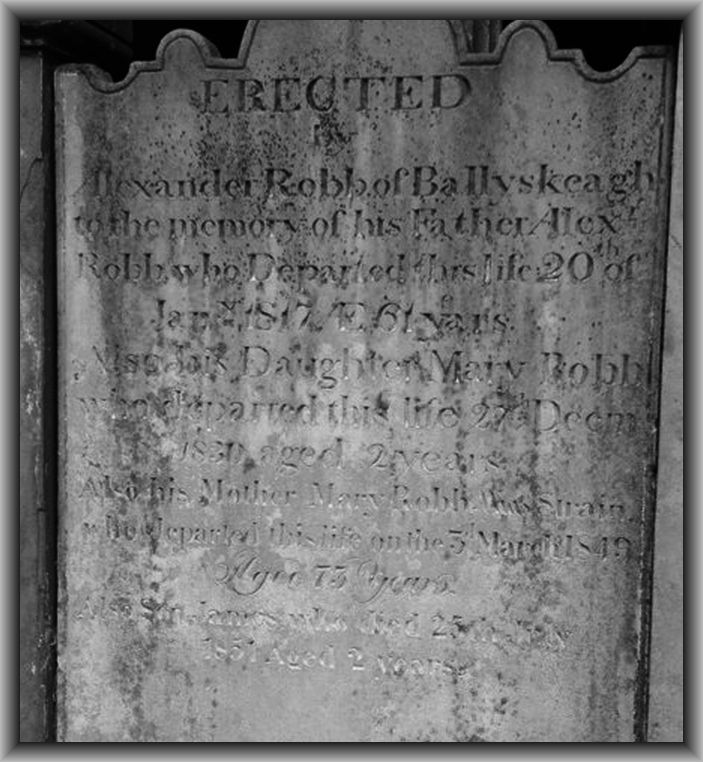 ERECTED
BY
Alexander Robb of Ballyskeagh
to the memory of his Father Alexr
Robb who Departed this life 20th of
Jany 1817 Æ 61 yars
Also his Daughter Mary Robb
who departed this life 27th Decm
1830 aged 2 years
Also his Mother Mary Robb Strain
who departed this life on the 3d March 1849
Aged 75 Years
Also Son James who died 25th
Aged 2 years